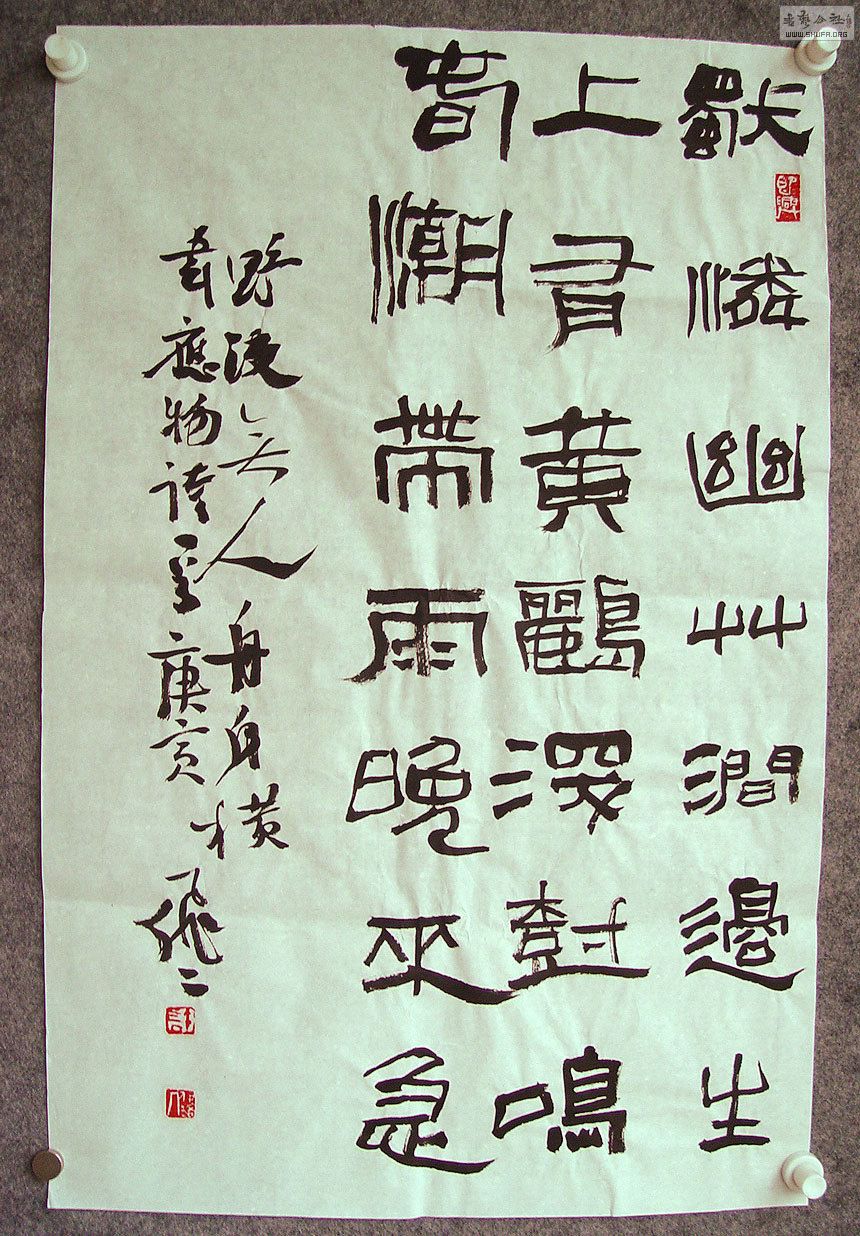 獨憐幽艸澗邊生
上有黃鸝深樹鳴
春潮帶雨晚來急
野渡無人舟自橫
韋應物詩 庚寅
WWW.SHUFA.ORG